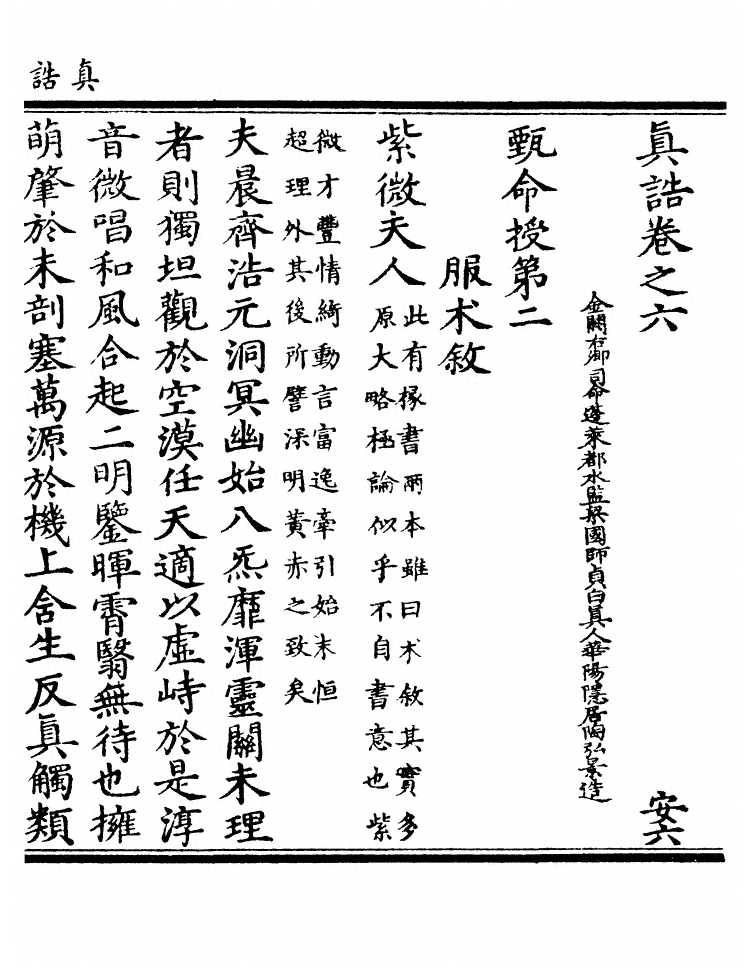 真誥
眞誥卷之六　安六
金闕右卿司命蓬萊都水監梁國師貞白眞人華陽隱居陶弘景造
甄命授第二
服术敘
紫微夫人
此有掾書兩本雖曰术敘其實多
原大略極論似乎不自書意也紫
微才豐情綺動言富逸牽引始末恒
超理外其後所譬深明黃赤之致矣
夫晨齊浩元洞冥幽始八炁靡渾靈關未理
者則獨坦觀於空漠任天適以虛峙於是淳
音微唱和風合起二明鑒暉霄翳無待也擁
萌肇於未剖塞萬源於機上含生反眞觸類